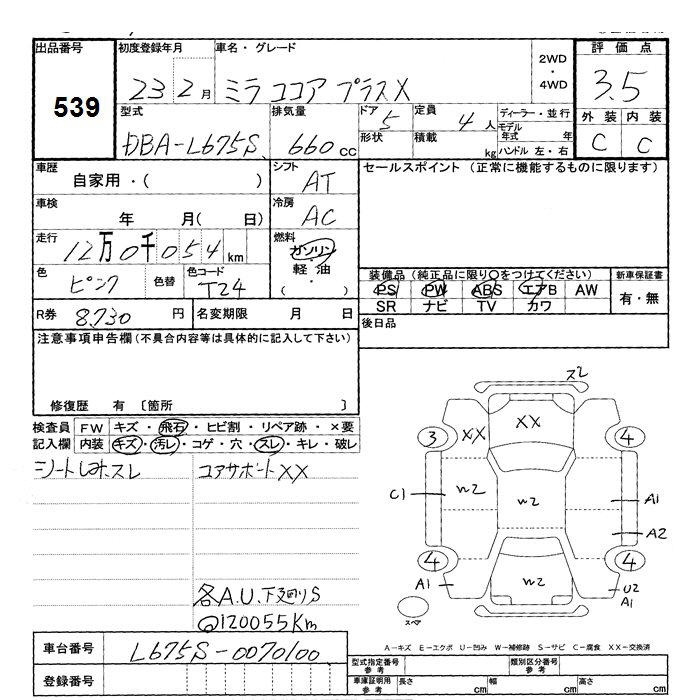 出品番号 初度登録年月 車名・グレード 評価点
539 23 2月 ミラ ココア プラス X 2WD・4WD 3.5
型式 排気量 ドア 5 定員 4人 ディーラー・並行 外装 内装
DBA-L675S 660cc 形状 積載 kg モデル年式 年 C C
ハンドル 左・右
車歴 自家用・( ) シフト AT セールスポイント (正常に機能するものに限ります)
車検 年 月( 日) 冷房 AC
走行 12万0千054km 燃料 ガソリン・軽油・( )
色 ピンク 色替 色コード T24 装備品(純正品に限り○をつけてください) 新車保証書
PS PW ABS エアB AW 有・無
SR ナビ TV カワ
R券 8,730円 名変期限 月 日 後日品
注意事項申告欄(不具合内容等は具体的に記入して下さい)
修復歴 有 〔箇所 〕
検査員 FW キズ・飛石・ヒビ割・リペア跡・×要
記入欄 内装 キズ・汚レ・コゲ・穴・スレ・キレ・破レ
シートしみスレ コアサポートXX
各A.U.下廻りS
@120055Km
ス2
XX
3 XX 4
C1 W2 W2 A1
A2
4 4
A1 W2 U2
A1
スペア
A-キズ E-エクボ U-凹み W-補修跡 S-サビ C-腐食 XX-交換済
車台番号 L675S-0070100
型式指定番号 参考 類別区分番号 参考
登録番号 車庫証明用 参考 長さ cm 幅 cm 高さ cm